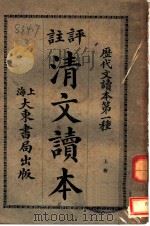 歷代文讀本第一種
評註
清文讀本
上冊
上海大東書局出版